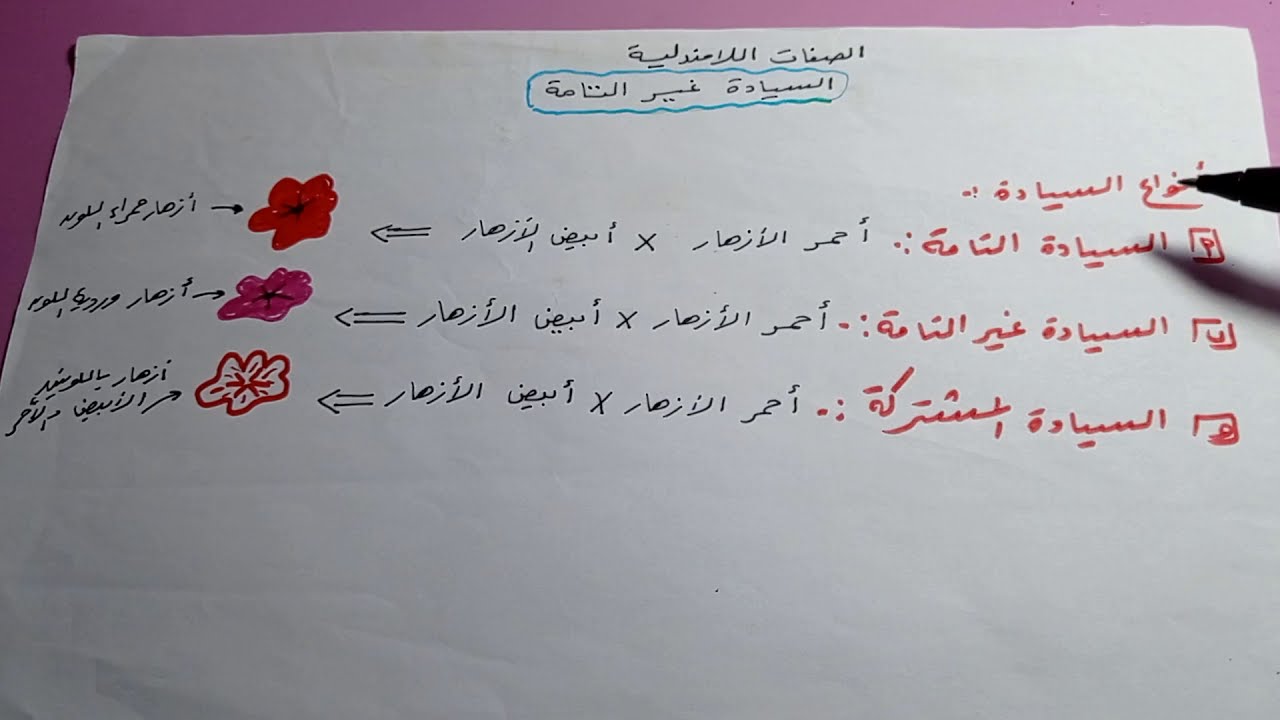 الصفات اللامندلية
السيادة غير التامة
أنواع السيادة :.
أ السيادة التامة :. أحمر الأزهار × أبيض الأزهار ⇐
أزهار حمراء اللون →
ب السيادة غير التامة :. أحمر الأزهار × أبيض الأزهار ⇐
أزهار وردية اللون →
هـ السيادة المشتركة :. أحمر الأزهار × أبيض الأزهار ⇐
أزهار باللونين
الأبيض والأحمر →